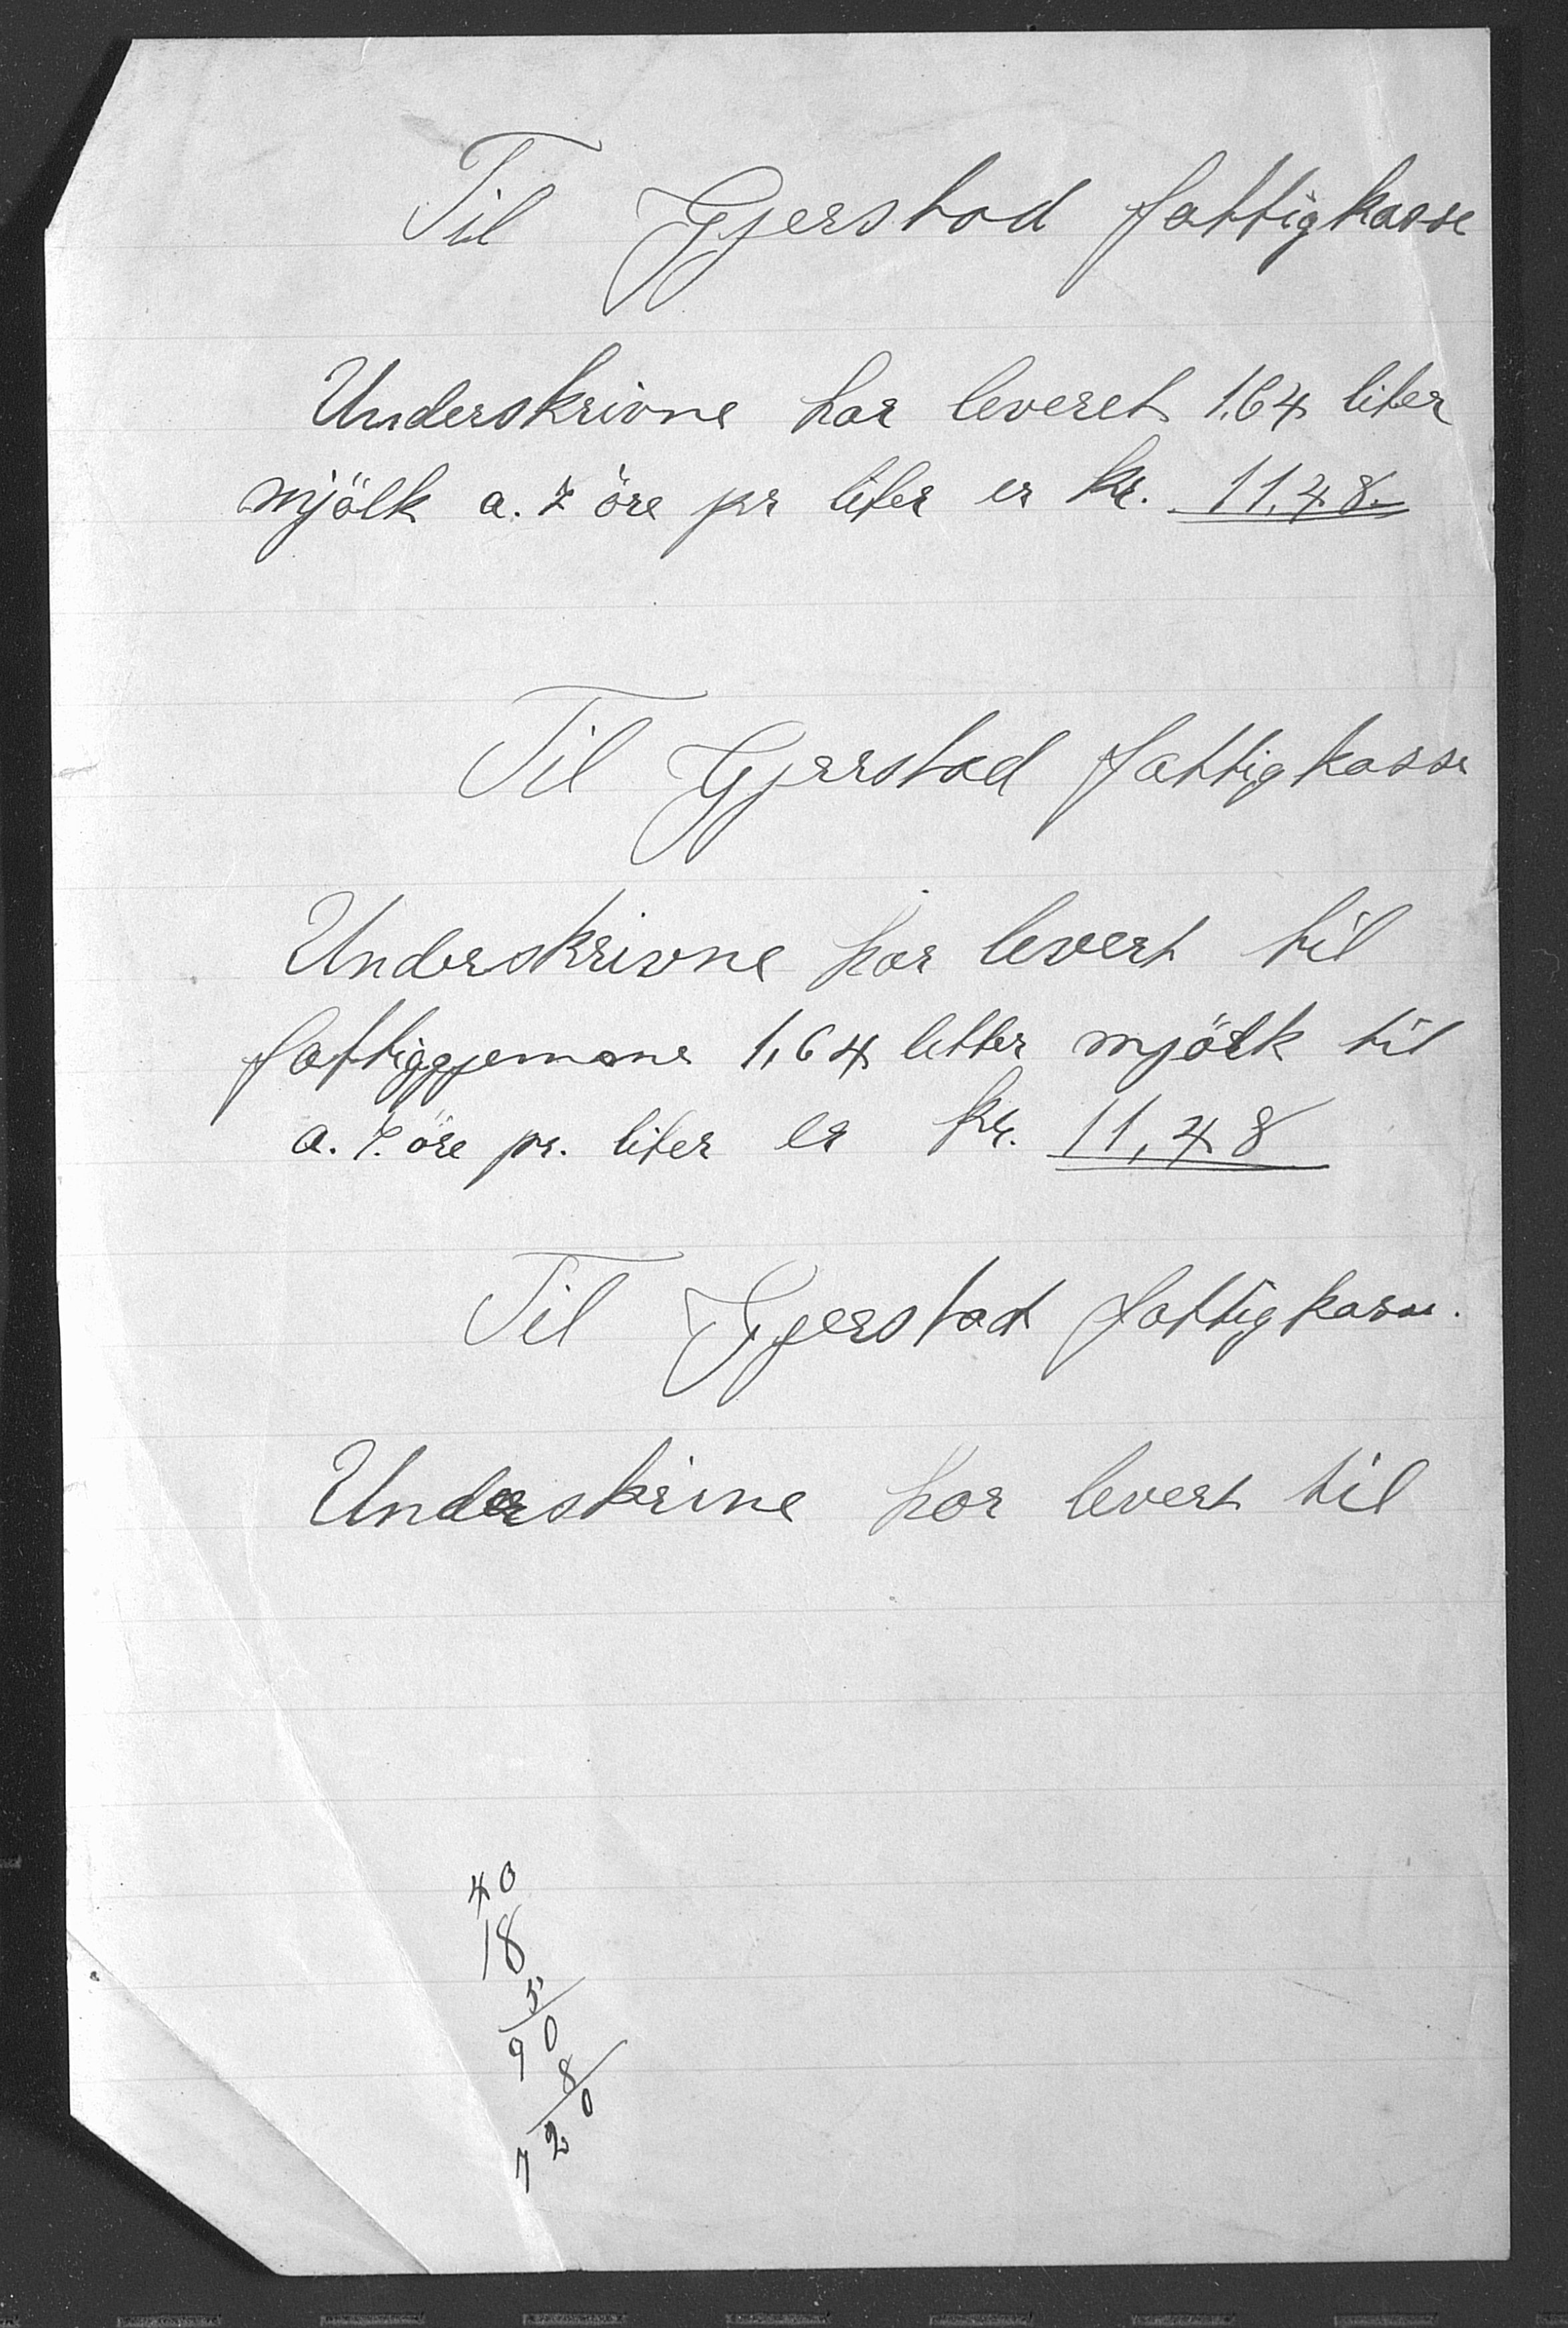 Til Gjerstad fattigkasse
Underskrivne har leveret 1.64 liter
mjölk a. 7 öre pr liter er kr. 11.48
Til Gjerstad fattigkasse
Underskrivne har levert til
fattiggjemone 1,64 litter mjölk til
a. 7. öre pr. liter er kr. 11,48
Til Gjerstad fattigkasse.
Underskrine har levert til
40
18
5
90
8
720